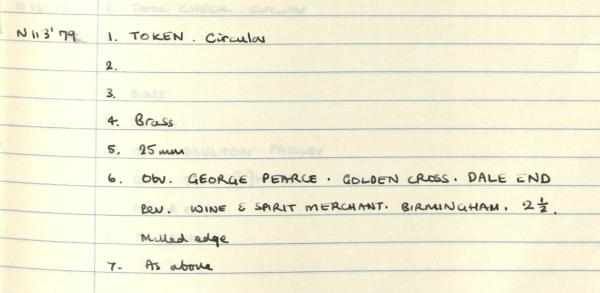 N113'79 1. TOKEN. Circular
2.
3.
4. Brass
5. 25mm
6. Obv. GEORGE PEARCE. GOLDEN CROSS. DALE END
Rev. WINE & SPIRIT MERCHANT. BIRMINGHAM. 2½.
Milled edge
7. As above